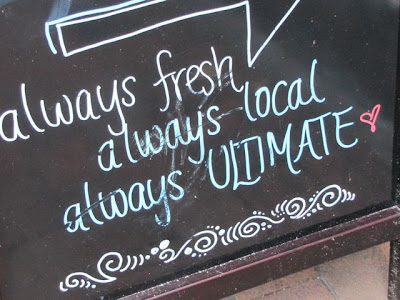 always fresh
always local
always ULTIMATE